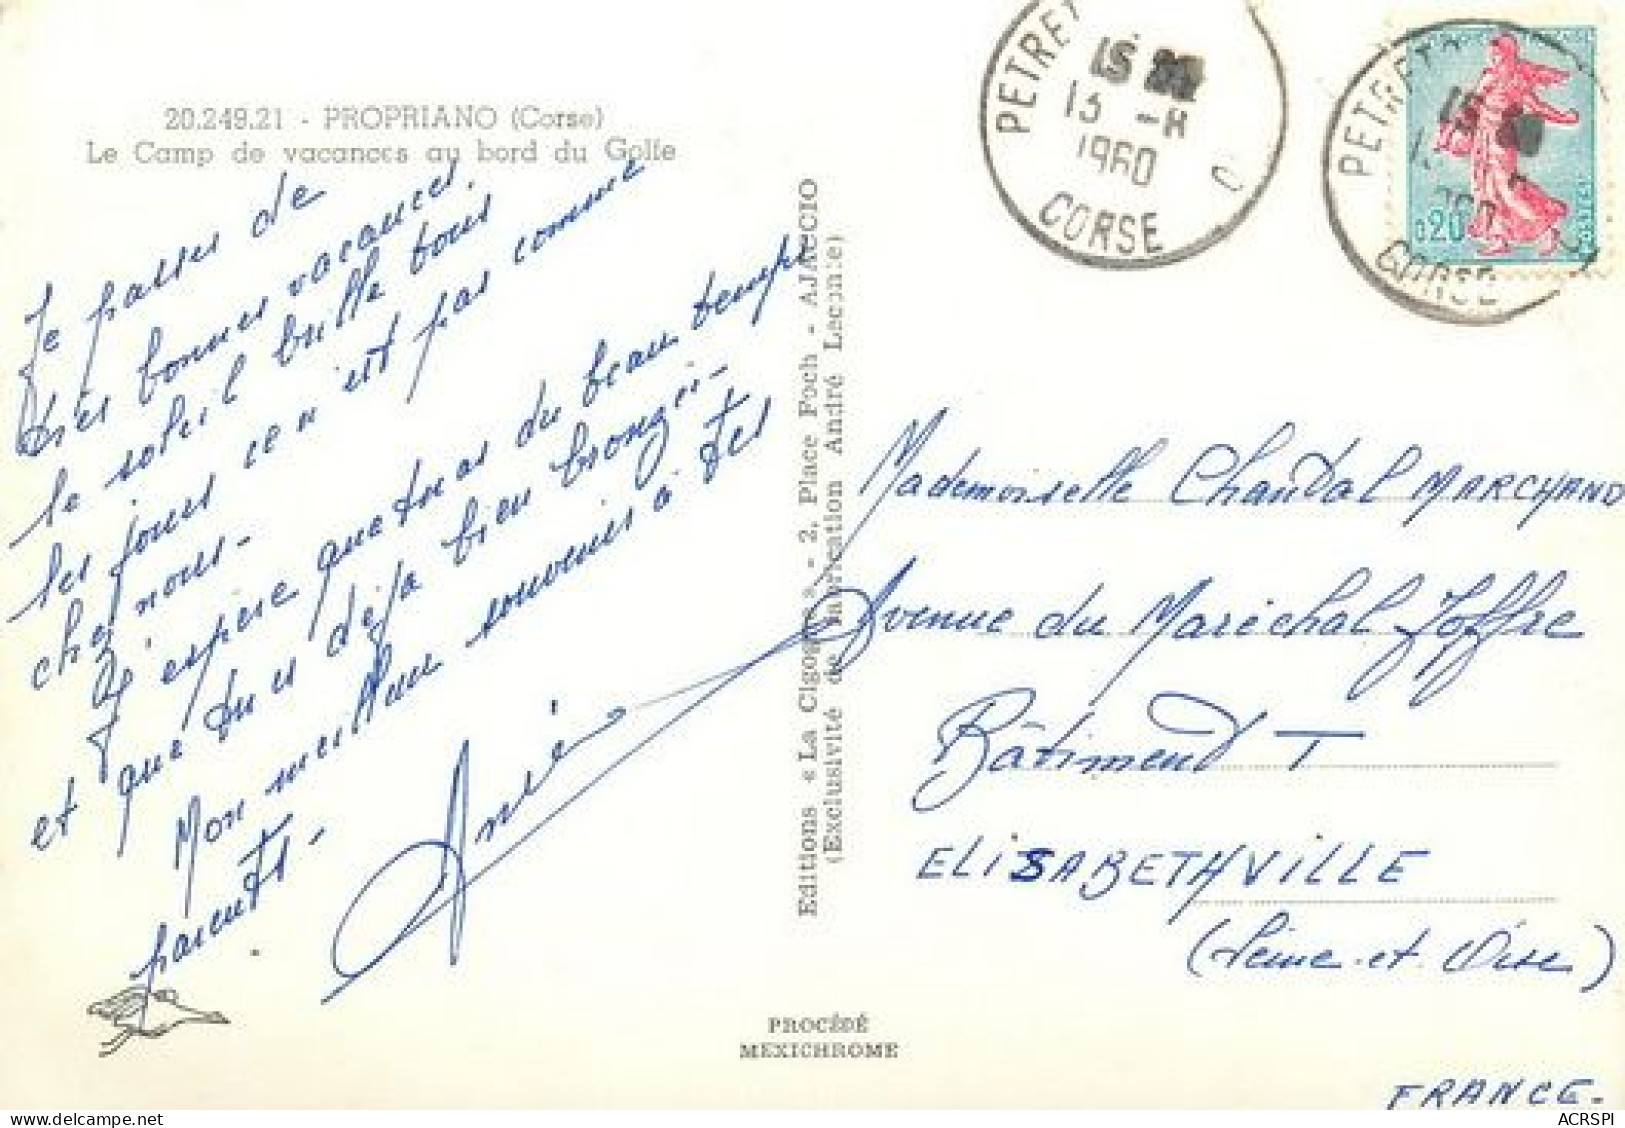 20.249.21 - PROPRIANO (Corse)
Le Camp de vacances au bord du Golfe
Je passe de
très bonnes vacances.
le soleil brille tous
les jours ce n'est pas comme
chez nous -
J'espère que tu as du beau temps
et que tu es déjà bien bronzée -
Mon meilleur souvenir à tes
parents -
Editions « La Cigogne » - 2, Place Foch - AJACCIO
(Exclusivité de fabrication André Leconte)
PROCÉDÉ
MEXICHROME
PETRET
15
13 - 8
1960
CORSE
PETRET
15
CORSE
0,20
POSTES
Mademoiselle Chantal MARCHAND
Avenue du Maréchal Joffre
Bâtiment T
ELISABETHVILLE
(Seine-et-Oise)
FRANCE.
ACRSPI